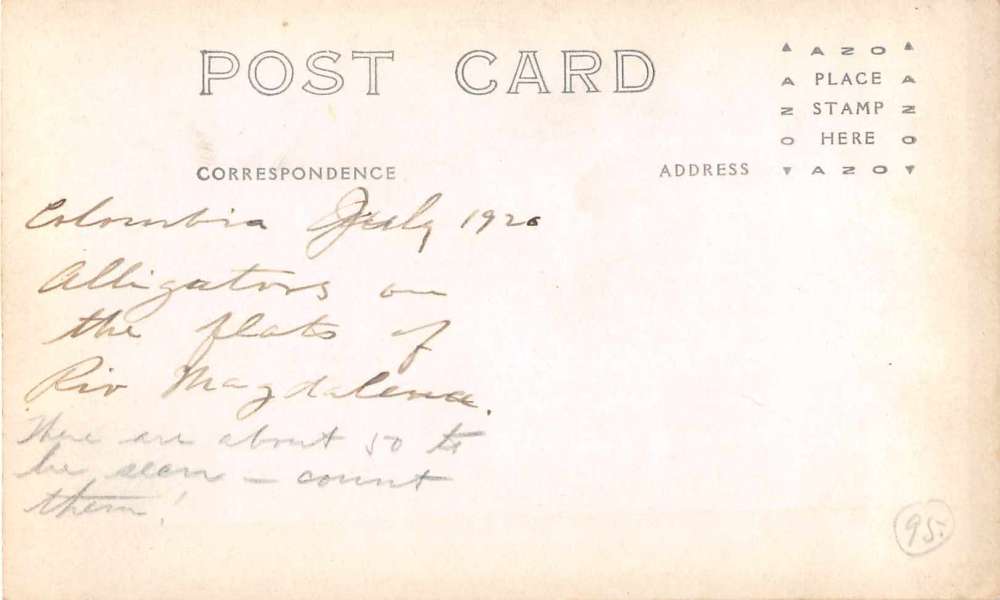 POST CARD
▲ A Z O ▲
A PLACE A
Z STAMP Z
O HERE O
▼ A Z O ▼
CORRESPONDENCE
ADDRESS
Colombia July 1926
Alligators on
the flats of
Rio Magdalena.
There are about 50 to
be seen – count
them!
95.